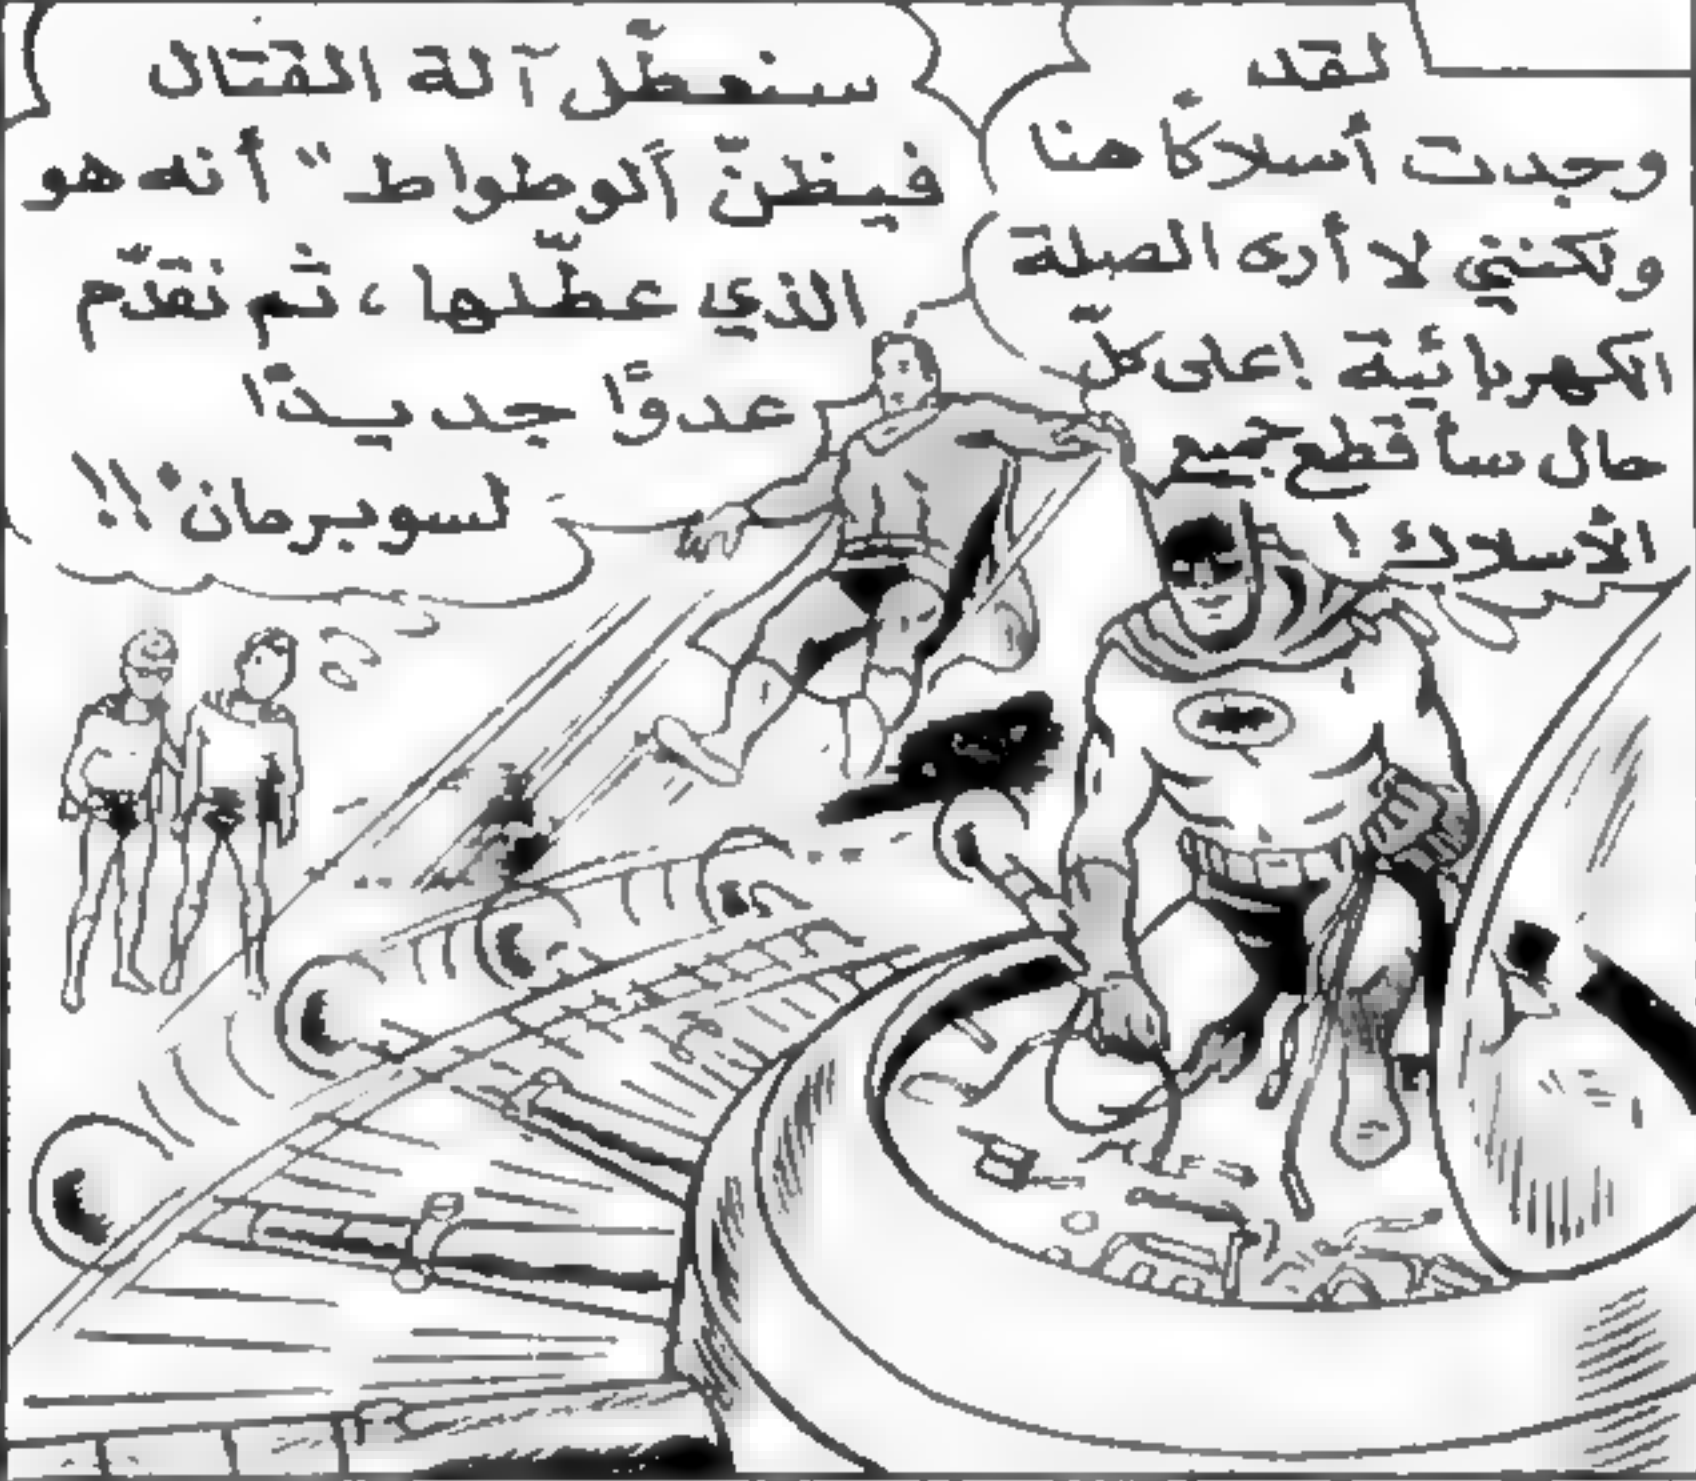 لقد
وجدت أسلاكًا هنا
ولكنني لا أرى الصلة
الكهربائية ! على كلّ
حال سأقطع جميع
الأسلاك !
سنعطّل آلة القتال
فيظنّ "الوطواط" أنه هو
الذي عطّلها ، ثم نقدّم
عدوًا جديدًا
لسوبرمان !!